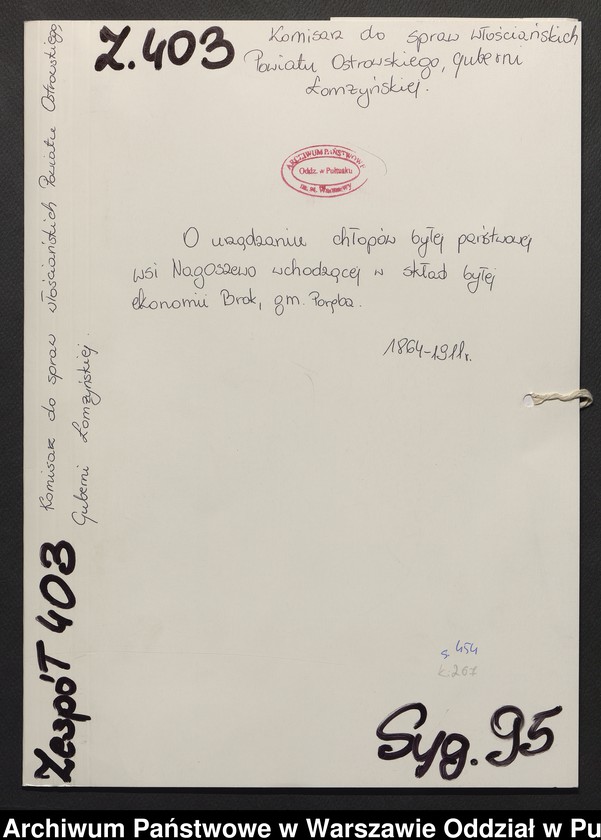 Z.403
Komisarz do spraw włościańskich
Powiatu Ostrowskiego, guberni
Łomżyńskiej.
ARCHIWUM PAŃSTWOWE
Oddz. w Pułtusku
m. st. Warszawy
O urządzeniu chłopów byłej państwowej
wsi Nagoszewo wchodzącej w skład byłej
ekonomii Brok, gm. Poręba.
1864-1911r.
Komisarz do spraw włościańskich Powiatu Ostrowskiego
Guberni Łomżyńskiej.
Zespół 403
s. 454
k. 267
Syg. 95
Archiwum Państwowe w Warszawie Oddział w Pu